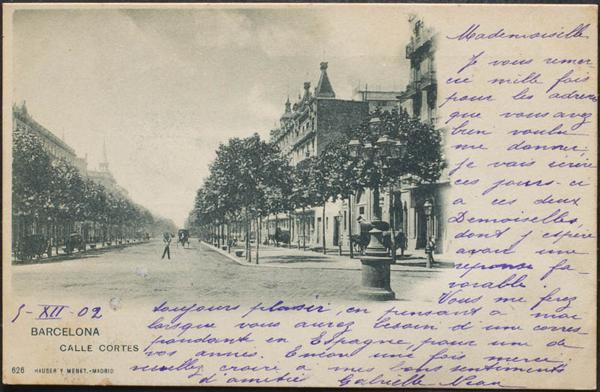 Mademoiselle
Je vous remer
cie mille fois
pour les adresses
que vous avez
bien voulu
me donner.
je vais écrire
ces jours-ci
a ces deux
Demoiselles
dont j'espère
avoir une
reponse fa-
vorable.
Vous me ferez
toujours plaisir, en pensant a moi
lorsque vous aurez besoin d'une corres
pondante en Espagne, pour une de
vos amies. Encore une fois merci,
veuillez croire a mes bons sentiments
d'amitiés Gabrielle
5-XII-02
BARCELONA
CALLE CORTES
626 HAUSER Y MENET.-MADRID